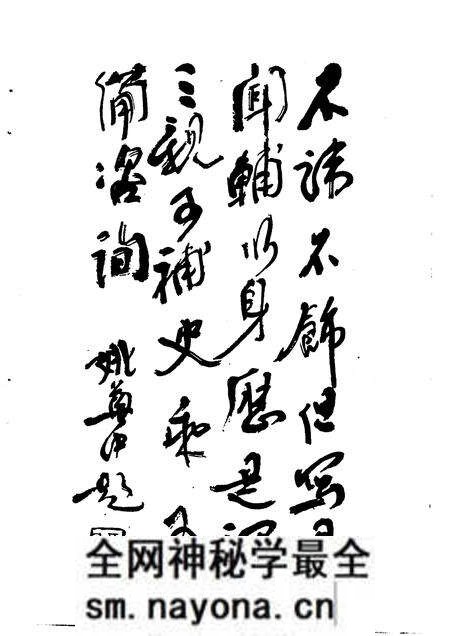 不諱不飾但寫
聞輔以身歷是
三親可補史乘可
備咨詢
姚奠中題
全网神秘学最全
sm.nayona.cn